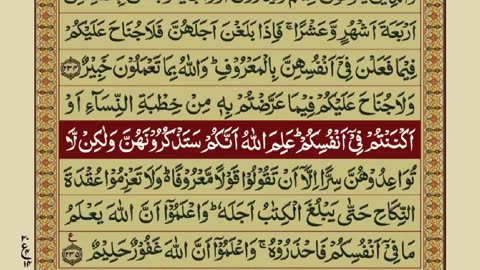 اَرْبَعَةَ اَشْهُرٍ وَّعَشْرًا ۚ فَاِذَا بَلَغْنَ اَجَلَهُنَّ فَلَا جُنَاحَ عَلَيْكُمْ
فِيْمَا فَعَلْنَ فِيْٓ اَنْفُسِهِنَّ بِالْمَعْرُوْفِ ؕ وَاللّٰهُ بِمَا تَعْمَلُوْنَ خَبِيْرٌ ﴿۲۳۴﴾
وَلَا جُنَاحَ عَلَيْكُمْ فِيْمَا عَرَّضْتُمْ بِهٖ مِنْ خِطْبَةِ النِّسَآءِ اَوْ
اَكْنَنْتُمْ فِيْٓ اَنْفُسِكُمْ ؕ عَلِمَ اللّٰهُ اَنَّكُمْ سَتَذْكُرُوْنَهُنَّ وَلٰكِنْ لَّا
تُوَاعِدُوْهُنَّ سِرًّا اِلَّآ اَنْ تَقُوْلُوْا قَوْلًا مَّعْرُوْفًا ؕ وَلَا تَعْزِمُوْا عُقْدَةَ
النِّكَاحِ حَتّٰى يَبْلُغَ الْكِتٰبُ اَجَلَهٗ ؕ وَاعْلَمُوْٓا اَنَّ اللّٰهَ يَعْلَمُ
مَا فِيْٓ اَنْفُسِكُمْ فَاحْذَرُوْهُ ۚ وَاعْلَمُوْٓا اَنَّ اللّٰهَ غَفُوْرٌ حَلِيْمٌ ﴿۲۳۵﴾